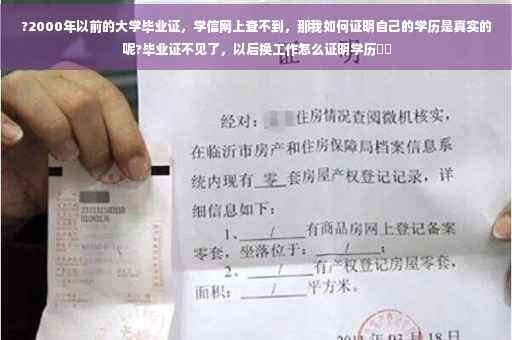 ?2000年以前的大学毕业证，学信网上查不到，那我如何证明自己的学历是真实的
呢?毕业证不见了，以后换工作怎么证明学历▯▯
证 明
经对：住房情况查阅微机核实，
在临沂市房产和住房保障局档案信息系
统内现有 零 套房屋产权登记记录，详
细信息如下：
1、 / 有商品房网上登记备案
零套，坐落位于： / ；
2、 / 有产权登记房屋零套，
面积： / 平方米。